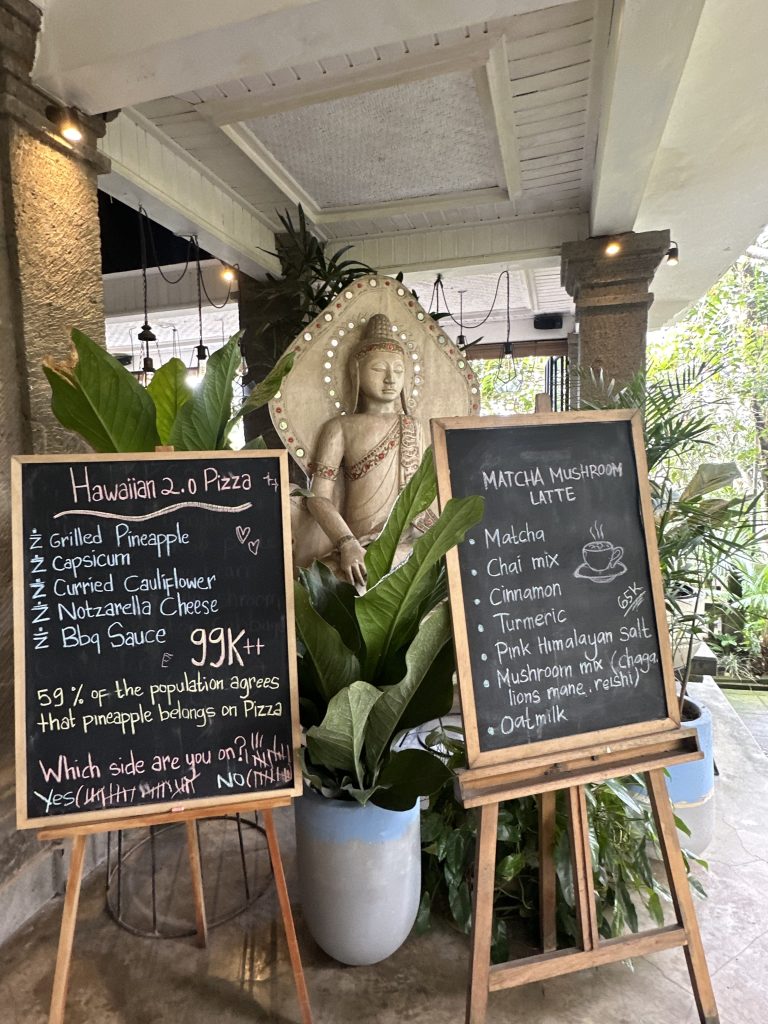 Hawaiian 2.0 Pizza
Grilled Pineapple
Capsicum
Curried Cauliflower
Notzarella Cheese
Bbq Sauce
99K++
59 % of the population agrees
that pineapple belongs on Pizza
Which side are you on?
Yes
NO
MATCHA MUSHROOM
LATTE
Matcha
Chai mix
Cinnamon
65K
Turmeric
Pink Himalayan salt
Mushroom mix (chaga,
lions mane, reishi)
Oatmilk